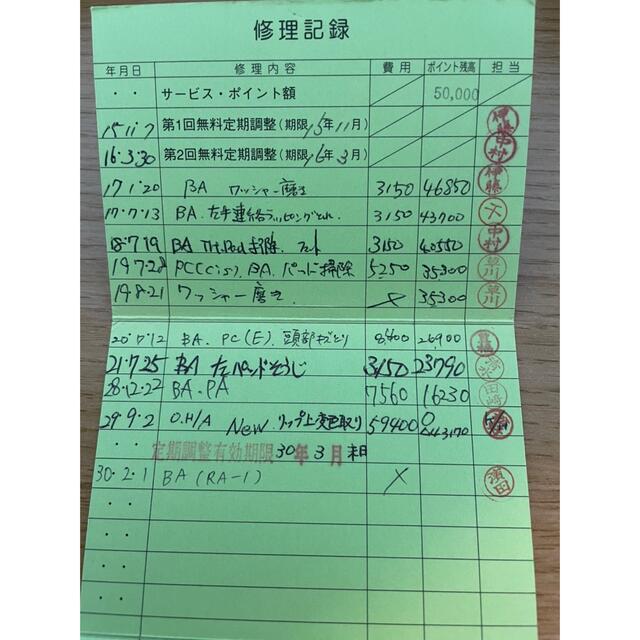 修理記録
年月日 修理内容 費用 ポイント残高 担当
・・ サービス・ポイント額 50,000
15 11 7 第1回無料定期調整(期限15年11月) 伊藤
16・3・30 第2回無料定期調整(期限16年3月) 中村
17 1・20 BA ワッシャー磨き 3150 46850 伊藤
17・7・13 BA. 左手連絡 3150 43700
18・7・19 BA 掃除. 3150 40550 中村
19 7・28 PC(Cis). BA. パッド掃除 5250 35,300 草川
19・8・21 ワッシャー磨き × 35,300 草川
20・7・12 BA. PC(E). 頭部 8400 26,900
21・7・25 BA 左パッドそうじ 3150 23790
28・12・22 BA. PA 7560 16230 田崎
29・9・2 O.H/A New. リップ上変色取り 59400 0
・・ 定期調整有効期限30年3月末日
30・2・1 BA (RA-1) × 濱田